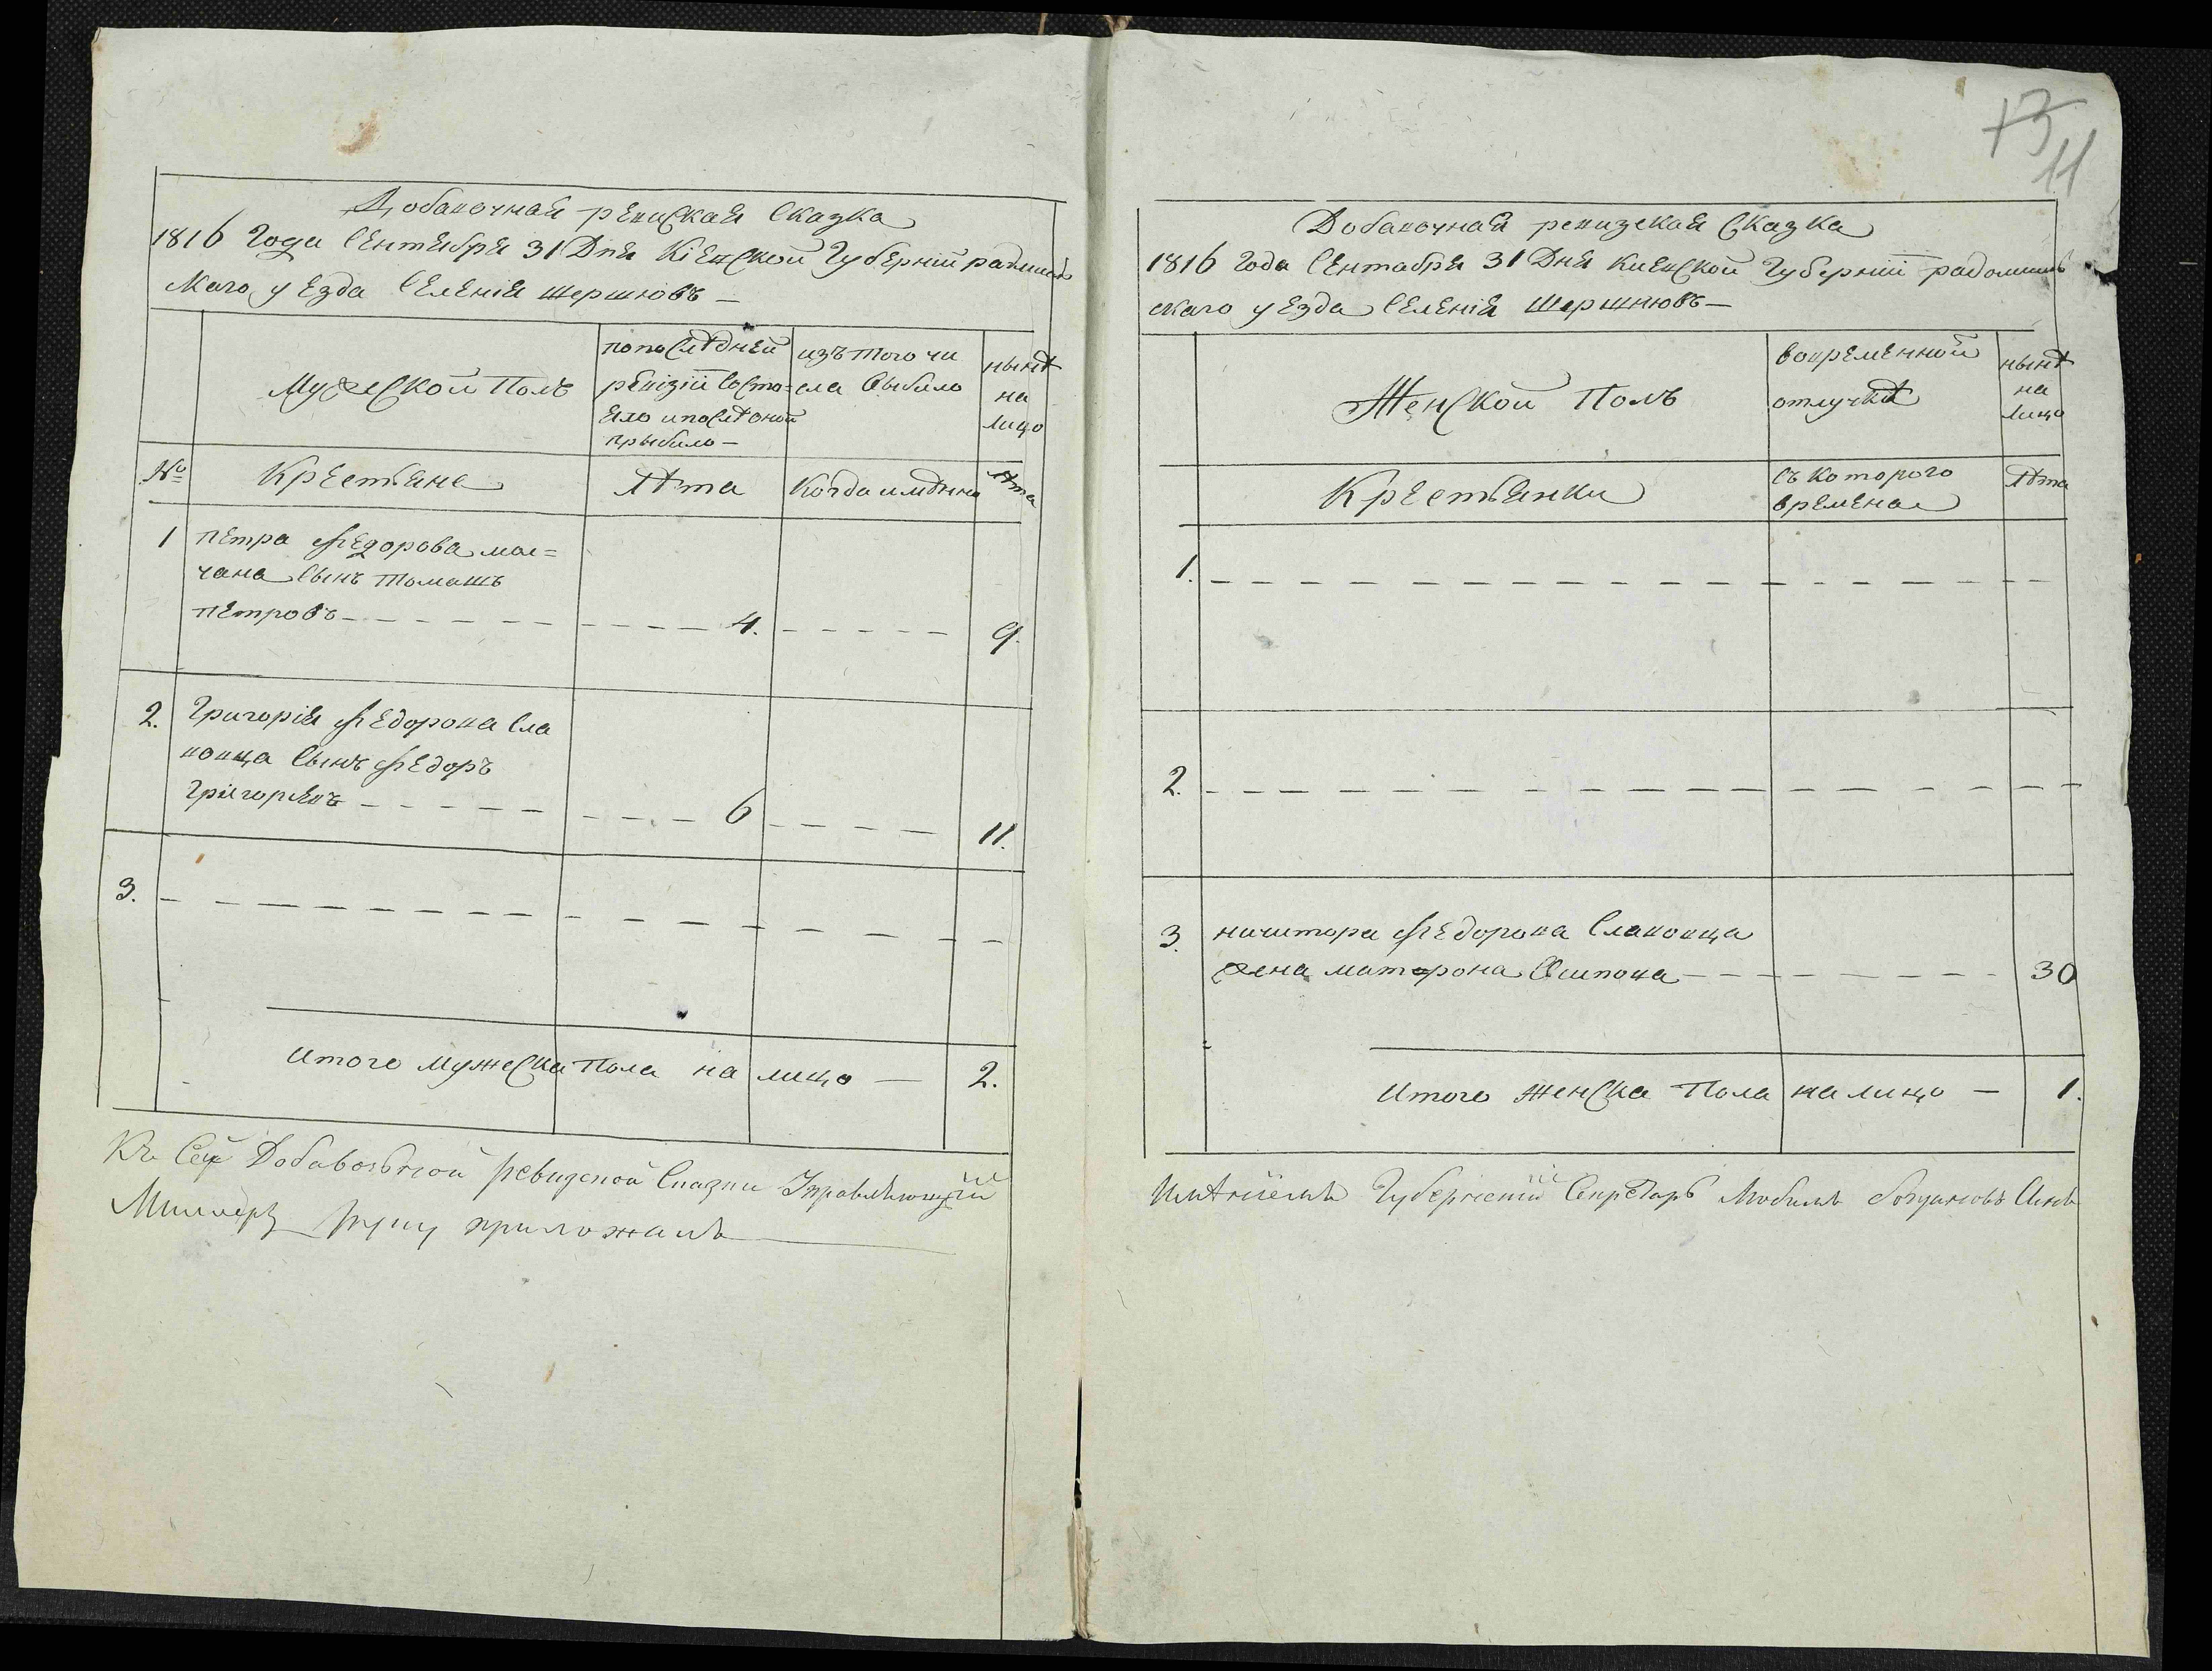 13
11
Добавочная ревиская сказка
1816 года Сентября 31 Дня Кіевской Губерніи радомысл
скаго уезда Селенія шершнювъ —
Мужеской Полъ
по последней ревізіи состо=яло и после оной прыбыло —
изъ того числа выбыло
нынѣ на лицо
№
Крестьяне
Лѣта
Когда имянно
Лѣта
1
петра федорова мол=
чана сынъ томашъ
петровъ — 4. 9.
2. Григорія федорова сла
вовца сынъ федоръ
григорьевъ — 6 11.
3.
итого мужеска пола на лицо — 2.
Къ Сей Добавочной ревизской Сказки Управляющій
Миллеръ руку приложилъ
Добавочная ревизская Сказка
1816 года Сентабря 31 Дня Киевской Губерніи радомысль
скаго уезда Селенія Шершнювъ —
Женской Полъ
вовременной отлучкѣ
нынѣ на лицо
Крестьянки
съ которого времена
Лѣта
1.
2.
3. никитора федорова Славовца
жена матрона Осипова — 30
Итого женска пола на лицо — 1.
Имѣніемъ Губернскій Секретарь